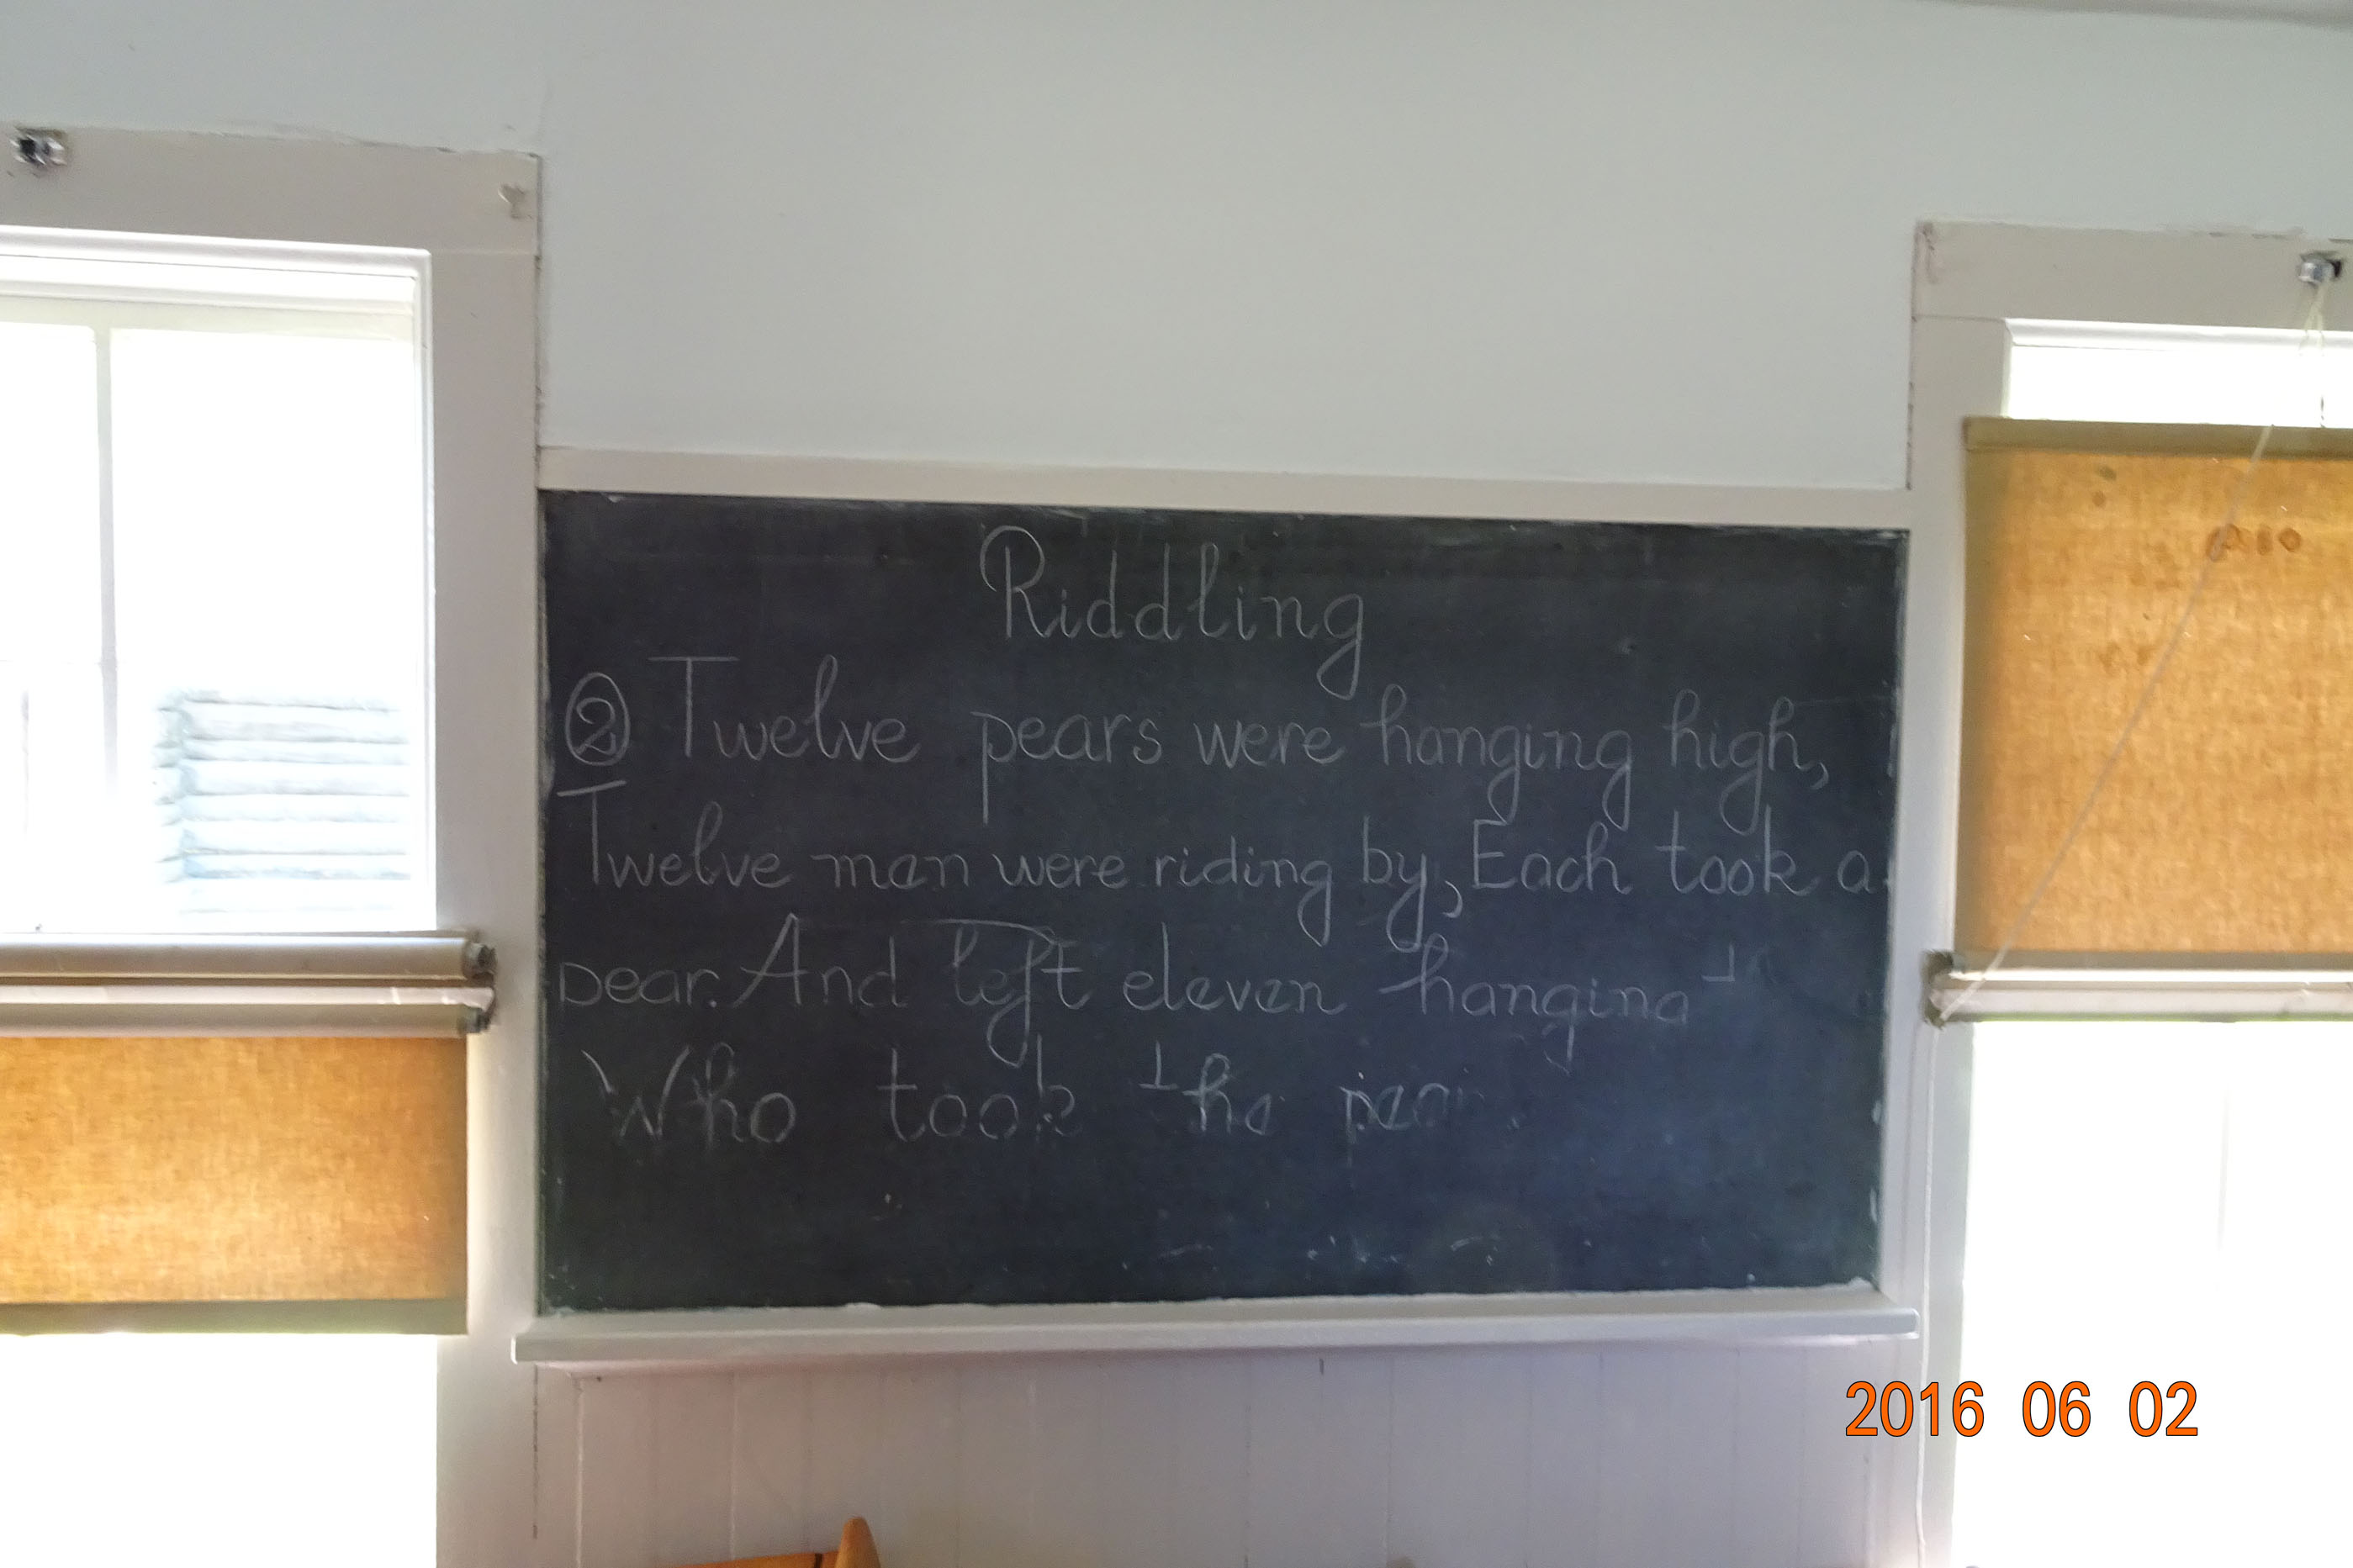 Riddling
② Twelve pears were hanging high,
Twelve men were riding by, Each took a
pear. And left eleven hanging
Who took the pear
2016 06 02